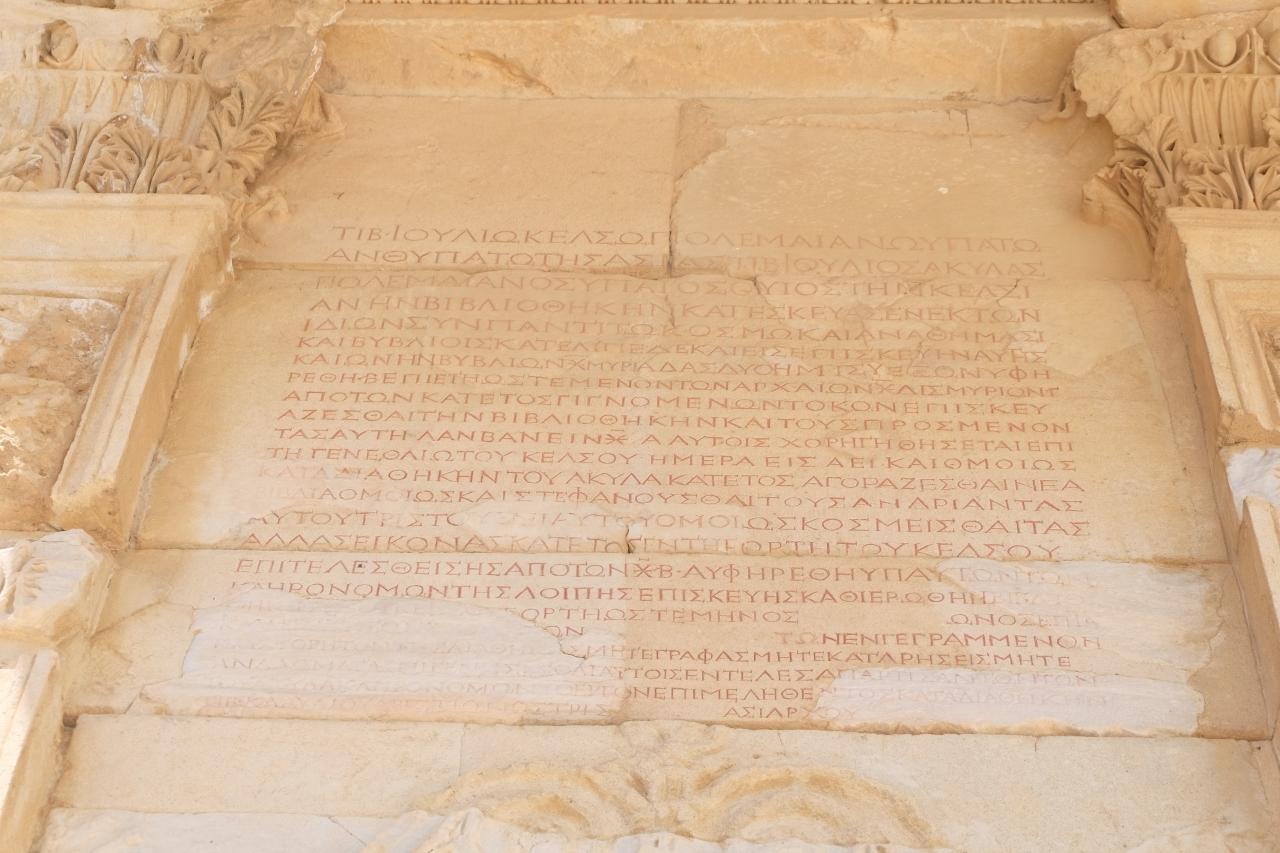 ΤΙΒ·ΙΟΥΛΙΩΚΕΛΣΩΠΤΟΛΕΜΑΙΑΝΩΥΠΑΤΩ
ΑΝΘΥΠΑΤΩΤΗΣΑΣΙΑΣΤΙΒΙΟΥΛΙΟΣΑΚΥΛΑΣ
ΠΟΛΕΜΑΙΑΝΟΣΥΠΑΤΟΣΟΥΙΟΣΤΗΝΚΕΛΣΙ
ΑΝΗΝΒΙΒΛΙΟΘΗΚΗΝΚΑΤΕΣΚΕΥΑΣΕΝΕΚΤΩΝ
ΙΔΙΩΝΣΥΝΠΑΝΤΙΤΩΚΟΣΜΩΚΑΙΑΝΑΘΗΜΑΣΙ
ΚΑΙΒΥΒΛΙΟΙΣΚΑΤΕΛΙΠΕΔΕΚΑΙΕΙΣΕΠΙΣΚΕΥΗΝΑΥΤΗΣ
ΚΑΙΩΝΗΝΒΥΒΛΙΩΝ ΜΥΡΙΑΔΑΣΔΥΟΗΜΙΣΥΕΞΩΝΥΦΗ
ΡΕΘΗ·ΒΕΠΙΕΤΗΩΣΤΕΜΕΝΟΝΤΩΝΑΡΧΑΙΩΝ ΔΙΣΜΥΡΙΩΝΤ
ΑΠΟΤΩΝΚΑΤΕΤΟΣΓΙΓΝΟΜΕΝΩΝΤΟΚΩΝΕΠΙΣΚΕΥ
ΑΖΕΣΘΑΙΤΗΝΒΙΒΛΙΟΘΗΚΗΝΚΑΙΤΟΥΣΠΡΟΣΜΕΝΟΝ
ΤΑΣΑΥΤΗΛΑΝΒΑΝΕΙΝ Α ΑΥΤΟΙΣΧΟΡΗΓΗΘΗΣΕΤΑΙΕΠΙ
ΤΗΓΕΝΕΘΛΙΩΤΟΥΚΕΛΣΟΥΗΜΕΡΑΕΙΣΑΕΙ·ΚΑΙΘΜΟΙΩΣ
ΚΑΤΑΔΙΑΘΗΚΗΝΤΟΥΑΚΥΛΑΚΑΤΕΤΟΣΑΓΟΡΑΖΕΣΘΑΙΝΕΑ
ΒΙΒΛΙΑΟΜΟΙΩΣΚΑΙΣΤΕΦΑΝΟΥΣΘΑΙΤΟΥΣΑΝΔΡΙΑΝΤΑΣ
ΑΥΤΟΥΤΡΙΣΤΟΥΕΤΑΥΤΟΥΟΜΟΙΩΣΚΟΣΜΕΙΣΘΑΙΤΑΣ
ΑΛΛΑΣΕΙΚΟΝΑΣΚΑΤΕΤΟΣΕΝΤΗΕΟΡΤΗΤΟΥΚΕΛΣΟΥ
ΕΠΙΤΕΛΕΣΘΕΙΣΗΣΑΠΟΤΩΝ Β·ΑΥΦΗΡΕΘΗΥΠΑΥΤΩΝΤΩΝ
ΚΛΗΡΟΝΟΜΩΝΤΗΣΛΟΙΠΗΣΕΠΙΣΚΕΥΗΣΚΑΘΙΕΡΩΘΗΗ
ΕΟΡΤΗΩΣΤΕΜΗΝΟΣ ΩΝΟΣΕΠΙΔ
ΩΝ ΤΩΝΕΝΓΕΓΡΑΜΜΕΝΩΝ
ΜΕΤΕΓΡΑΦΑΣΜΗΤΕΚΑΤΑΡΗΣΕΙΣΜΗΤΕ
ΑΥΤΟΙΣΕΝΤΕΛΕΣΑΠΑΡΤΙΣΑΝΤΩΝΤΩΝ
ΚΛΗΡΟΝΟΜΩΝΤΟΕΡΓΟΝΕΠΙΜΕΛΗΘΕΝΤΟΣΚΑΤΑΔΙΑΘΗΚΗΝ
ΑΣΙΑΡΧΟΥ